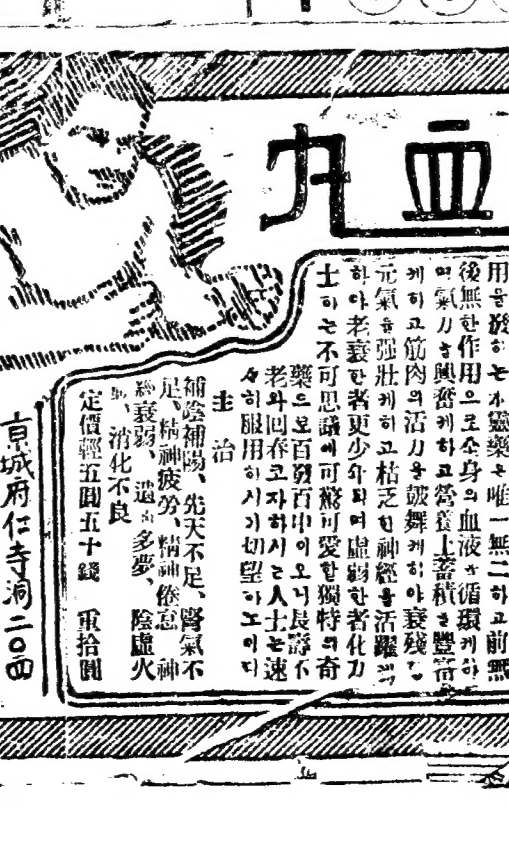 血丸
用을發하는本靈藥은唯一無二하고前無
後無한作用으로全身의血液을循環케하
며氣力을興奮케하고營養上蓄積을豐富
케하고筋肉의活力을皷舞케하야衰殘
元氣를强壯케하고枯乏한神經을活躍케
하야老衰한者更少年되며虛弱한者化力
士하는不可思議에可驚可愛할獨特의奇
藥으로百發百中이오니長壽不
老와回春코자하시는人士는速
히服用하시기切望하노이다
主治
補陰補陽、先天不足、腎氣不
足、精神疲勞、精神倦怠、神
經衰弱、遺 多夢、陰虛火
動、消化不良
定價輕五圓五十錢 重拾圓
京城府仁寺洞二〇四